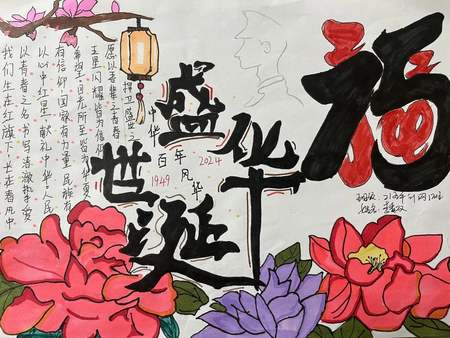 我们生在红旗下,长在春风中
以青春之名书写清澈挚爱
以心中红星,献礼中华人民
有信仰,国家有力量,民族有
希望,目光所至皆为华夏
五星闪耀皆为信仰
愿以吾辈之青春
捍卫盛世之
中华
盛世华诞
百年风华
1949
2024
福
班级:
姓名: